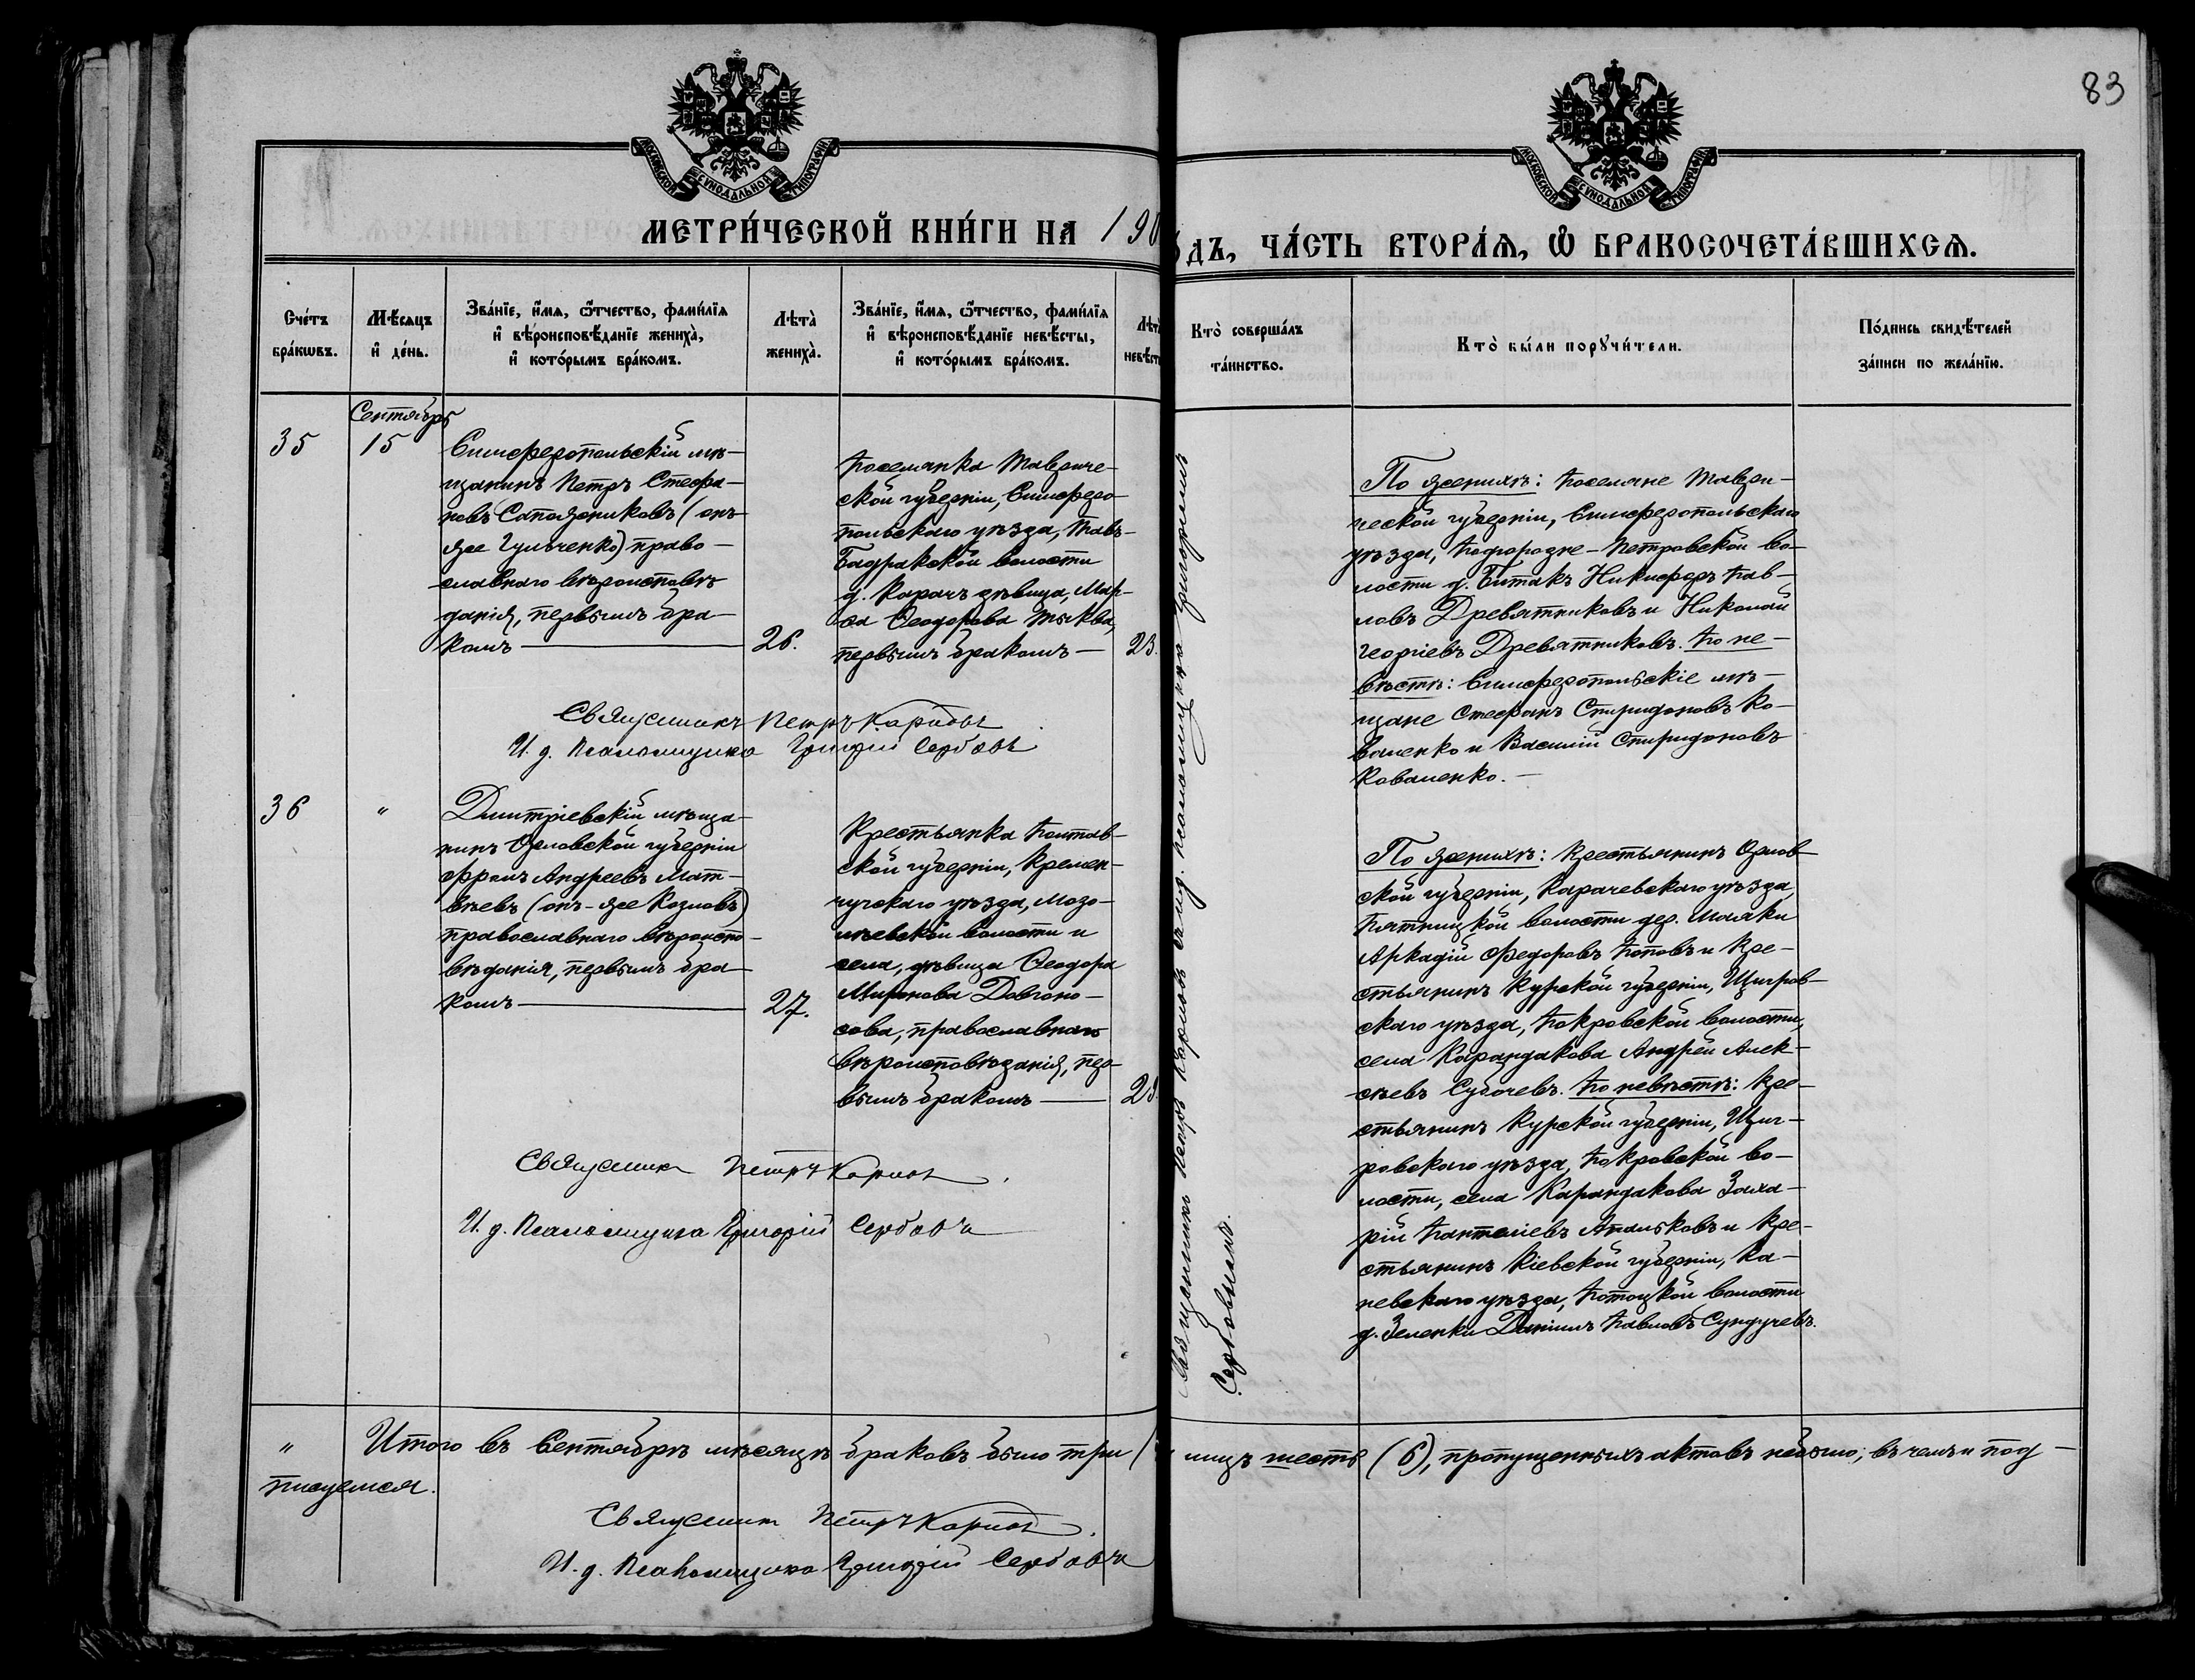 83
МОСКОВСКОЙ СѴНОДАЛЬНОЙ ТИПОГРАФІИ
МОСКОВСКОЙ СѴНОДАЛЬНОЙ ТИПОГРАФІИ
МЕТРИ́ЧЕСКОЙ КНИ́ГИ НА 190
ДЪ, ЧА́СТЬ ВТОРА́Я, Ѽ БРАКОСОЧЕТА́ВШИХСЯ.
Сче́тъ
бра́кѡвъ.
Мѣ́сяцъ
и҆ де́нь.
Зва́нїе, и҆́мя, ѻ҆́тчество, фами́лїя
и҆ вѣ́роисповѣ́данїе жениха̀,
и҆ кото́рымъ бра́комъ.
Лѣта̀
жениха̀.
Зва́нїе, и҆́мя, ѻ҆́тчество, фами́лїя
и҆ вѣ́роисповѣ́данїе невѣ́сты,
и҆ кото́рымъ бра́комъ.
Лѣта̀
невѣ́ст
Кто̀ соверша́лъ
та́инство.
Кто̀ бы́ли порꙋчи́тели.
По́дпись свидѣ́телей
за́писи по жела́нїю.
Сентябрь
35
15
Симферопольскій мѣ-
щанинъ Петръ Стефа-
новъ Сапожниковъ (онъ
же Гульченко) право-
славнаго вѣроисповѣ
данія, первымъ бра-
комъ
26.
Поселянка Тавриче-
ской губерніи, Симферо-
польскаго уѣзда, Тавъ-
Бадракской волости
д. Карачъ дѣвица, Мар-
ѳа Ѳеодорова Тыква,
первымъ бракомъ
23.
Священникъ Петръ Карповъ
И. д. Псаломщика Григорій Сербовъ
По женихѣ: Поселяне Таври-
ческой губерніи, Симферопольскаго
уѣзда, Подгородне-Петровской во-
лости д. Битакъ Никифоръ Пав-
ловъ Древятниковъ и Николай
Георгіевъ Древятниковъ. По не-
вѣстѣ: Симферопольскіе мѣ-
щане Стефанъ Спиридоновъ Ко-
валенко и Василій Спиридоновъ
Коваленко.
36
"
Дмитріевскій мѣща-
нинъ Орловской губерніи
Фролъ Андреевъ Мат-
вѣевъ (онъ-же Козловъ)
православнаго вѣроиспо-
вѣданія, первымъ бра
комъ
27.
Крестьянка Полтав-
ской губерніи, Кремен-
чугскаго уѣзда, Мозо-
лѣевской волости и
села, дѣвица Ѳеодора
Миронова Довгоно-
сова, православнаго
вѣроисповѣданія, пер-
вымъ бракомъ
23.
Священникъ Петръ Карповъ
И. д. Псаломщика Григорій Сербовъ
По женихѣ: Крестьянинъ Орлов-
ской губерніи, Карачевскаго уѣзда,
Пятницкой волости дер. Маяки
Аркадій Федоровъ Поповъ и Кре-
стьянинъ Курской губерніи, Щигров-
скаго уѣзда, Покровской волости,
села Карандакова Андрей Алек-
сѣевъ Субочевъ. По невѣстѣ: Кре-
стьянинъ Курской губерніи, Щиг-
ровскаго уѣзда, Покровской во-
лости, села Карандакова Заха-
рій Пантелiевъ Апальковъ и Кре-
стьянинъ Кіевской губерніи, Ка-
невскаго уѣзда, Потоцкой волости
д. Зеленки Даніилъ Павловъ Сундучевъ.
Священникъ Петръ Карповъ съ и.д. псаломщика Григоріемъ
Сербовымъ.
" Итого въ Сентябрѣ мѣсяцѣ браковъ было три (
лицъ шесть (6), пропущенныхъ актовъ небыло; въ чемъ и под-
писуемся.
Священникъ Петръ Карповъ
И. д. Псаломщика Григорій Сербовъ